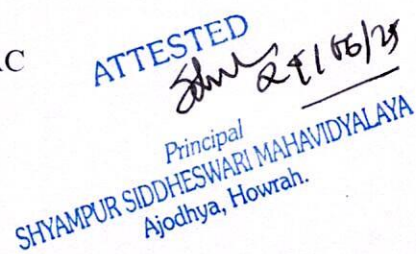 C
ATTESTED
Principal
SHYAMPUR SIDDHESWARI MAHAVIDYALAYA
Ajodhya, Howrah.